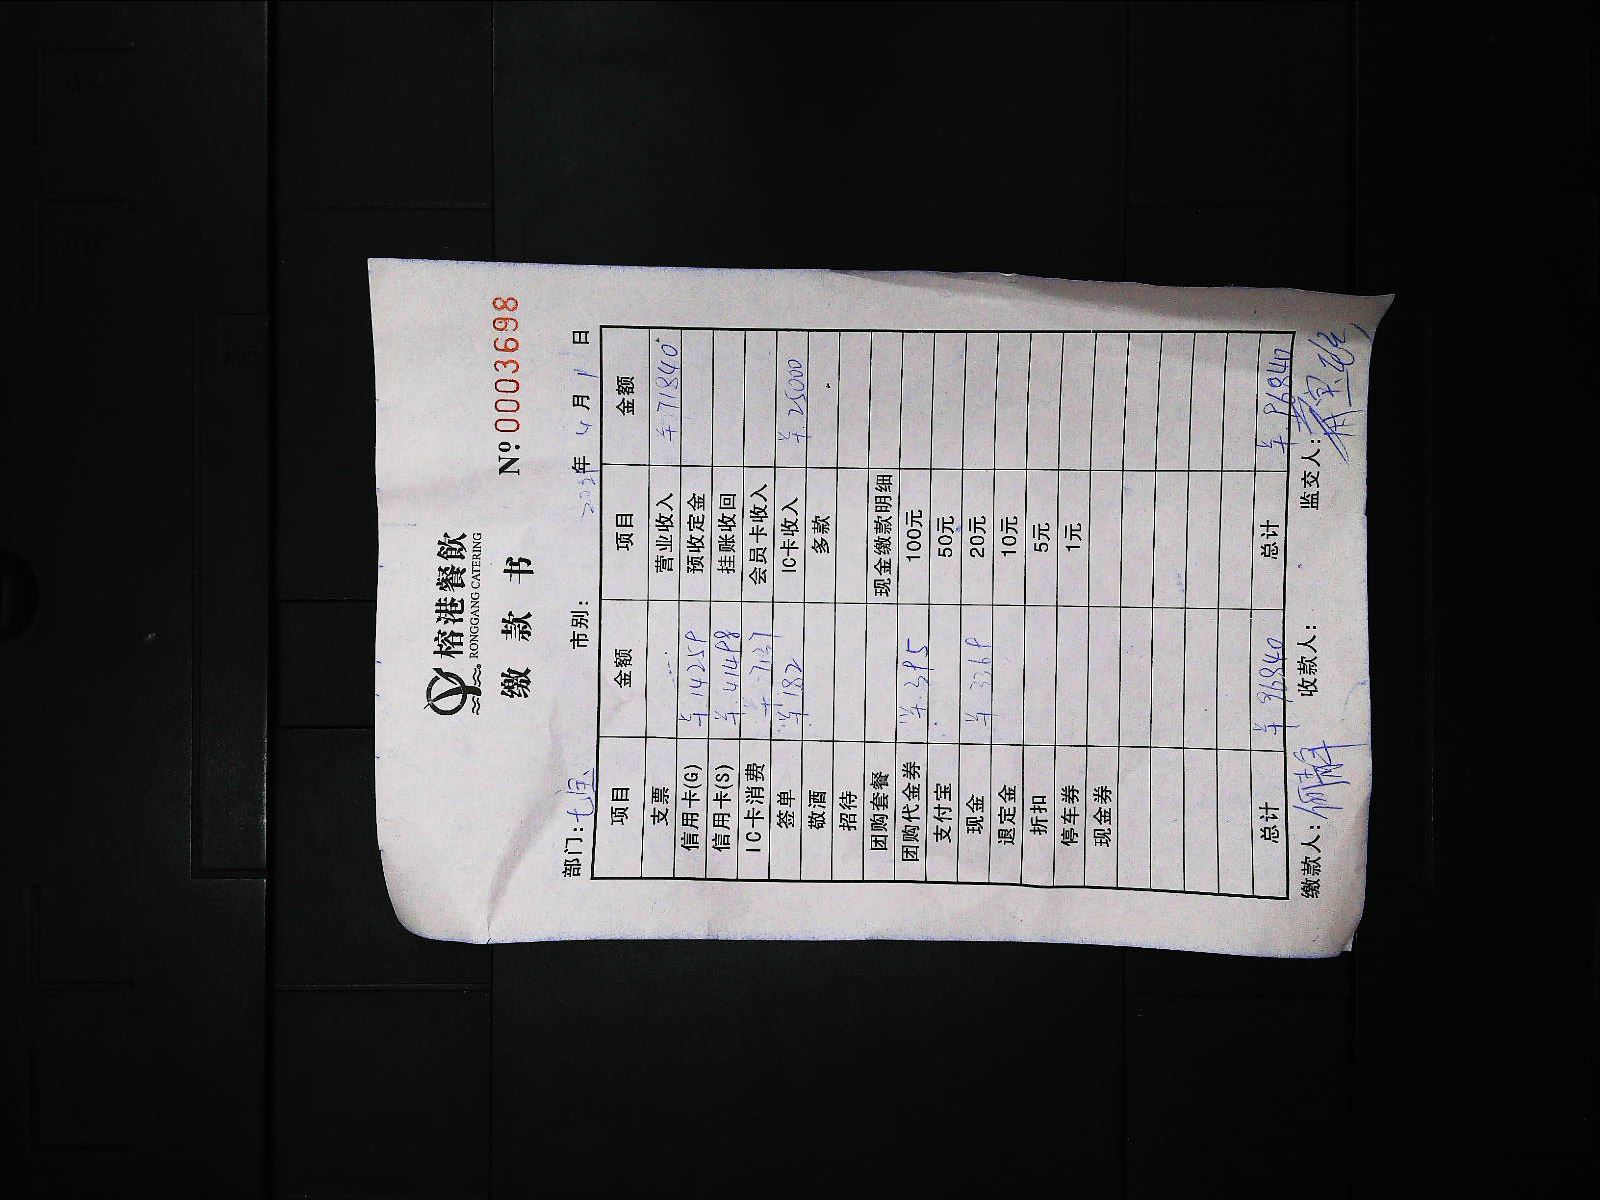 榕港餐飲
RONGGANG CATERING
缴 款 书
Nº 0003698
部门: 七宝 市别: 年 4 月 1 日
项目 金额 项目 金额
支票 营业收入 ¥71840
信用卡(G) ¥14259 预收定金
信用卡(S) ¥41498 挂账收回
IC卡消费 ¥37137 会员卡收入
签单 ¥182 IC卡收入 ¥25000
敬酒 多款
招待
团购套餐 现金缴款明细
团购代金券 ¥395 100元
支付宝 50元
现金 ¥3369 20元
退定金 10元
折扣 5元
停车券 1元
现金券
总计 ¥96840 总计 ¥96840
缴款人: 何静 收款人: 监交人: